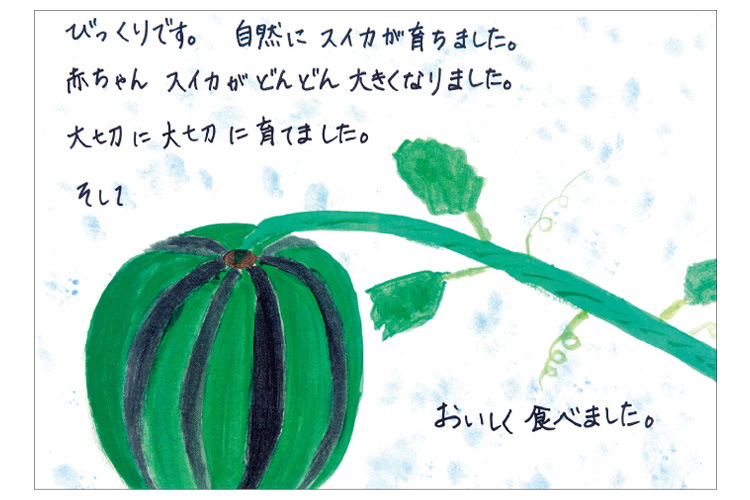 びっくりです。 自然に スイカが育ちました。
赤ちゃん スイカが どんどん 大きくなりました。
大切に 大切に 育てました。
そして
おいしく 食べました。